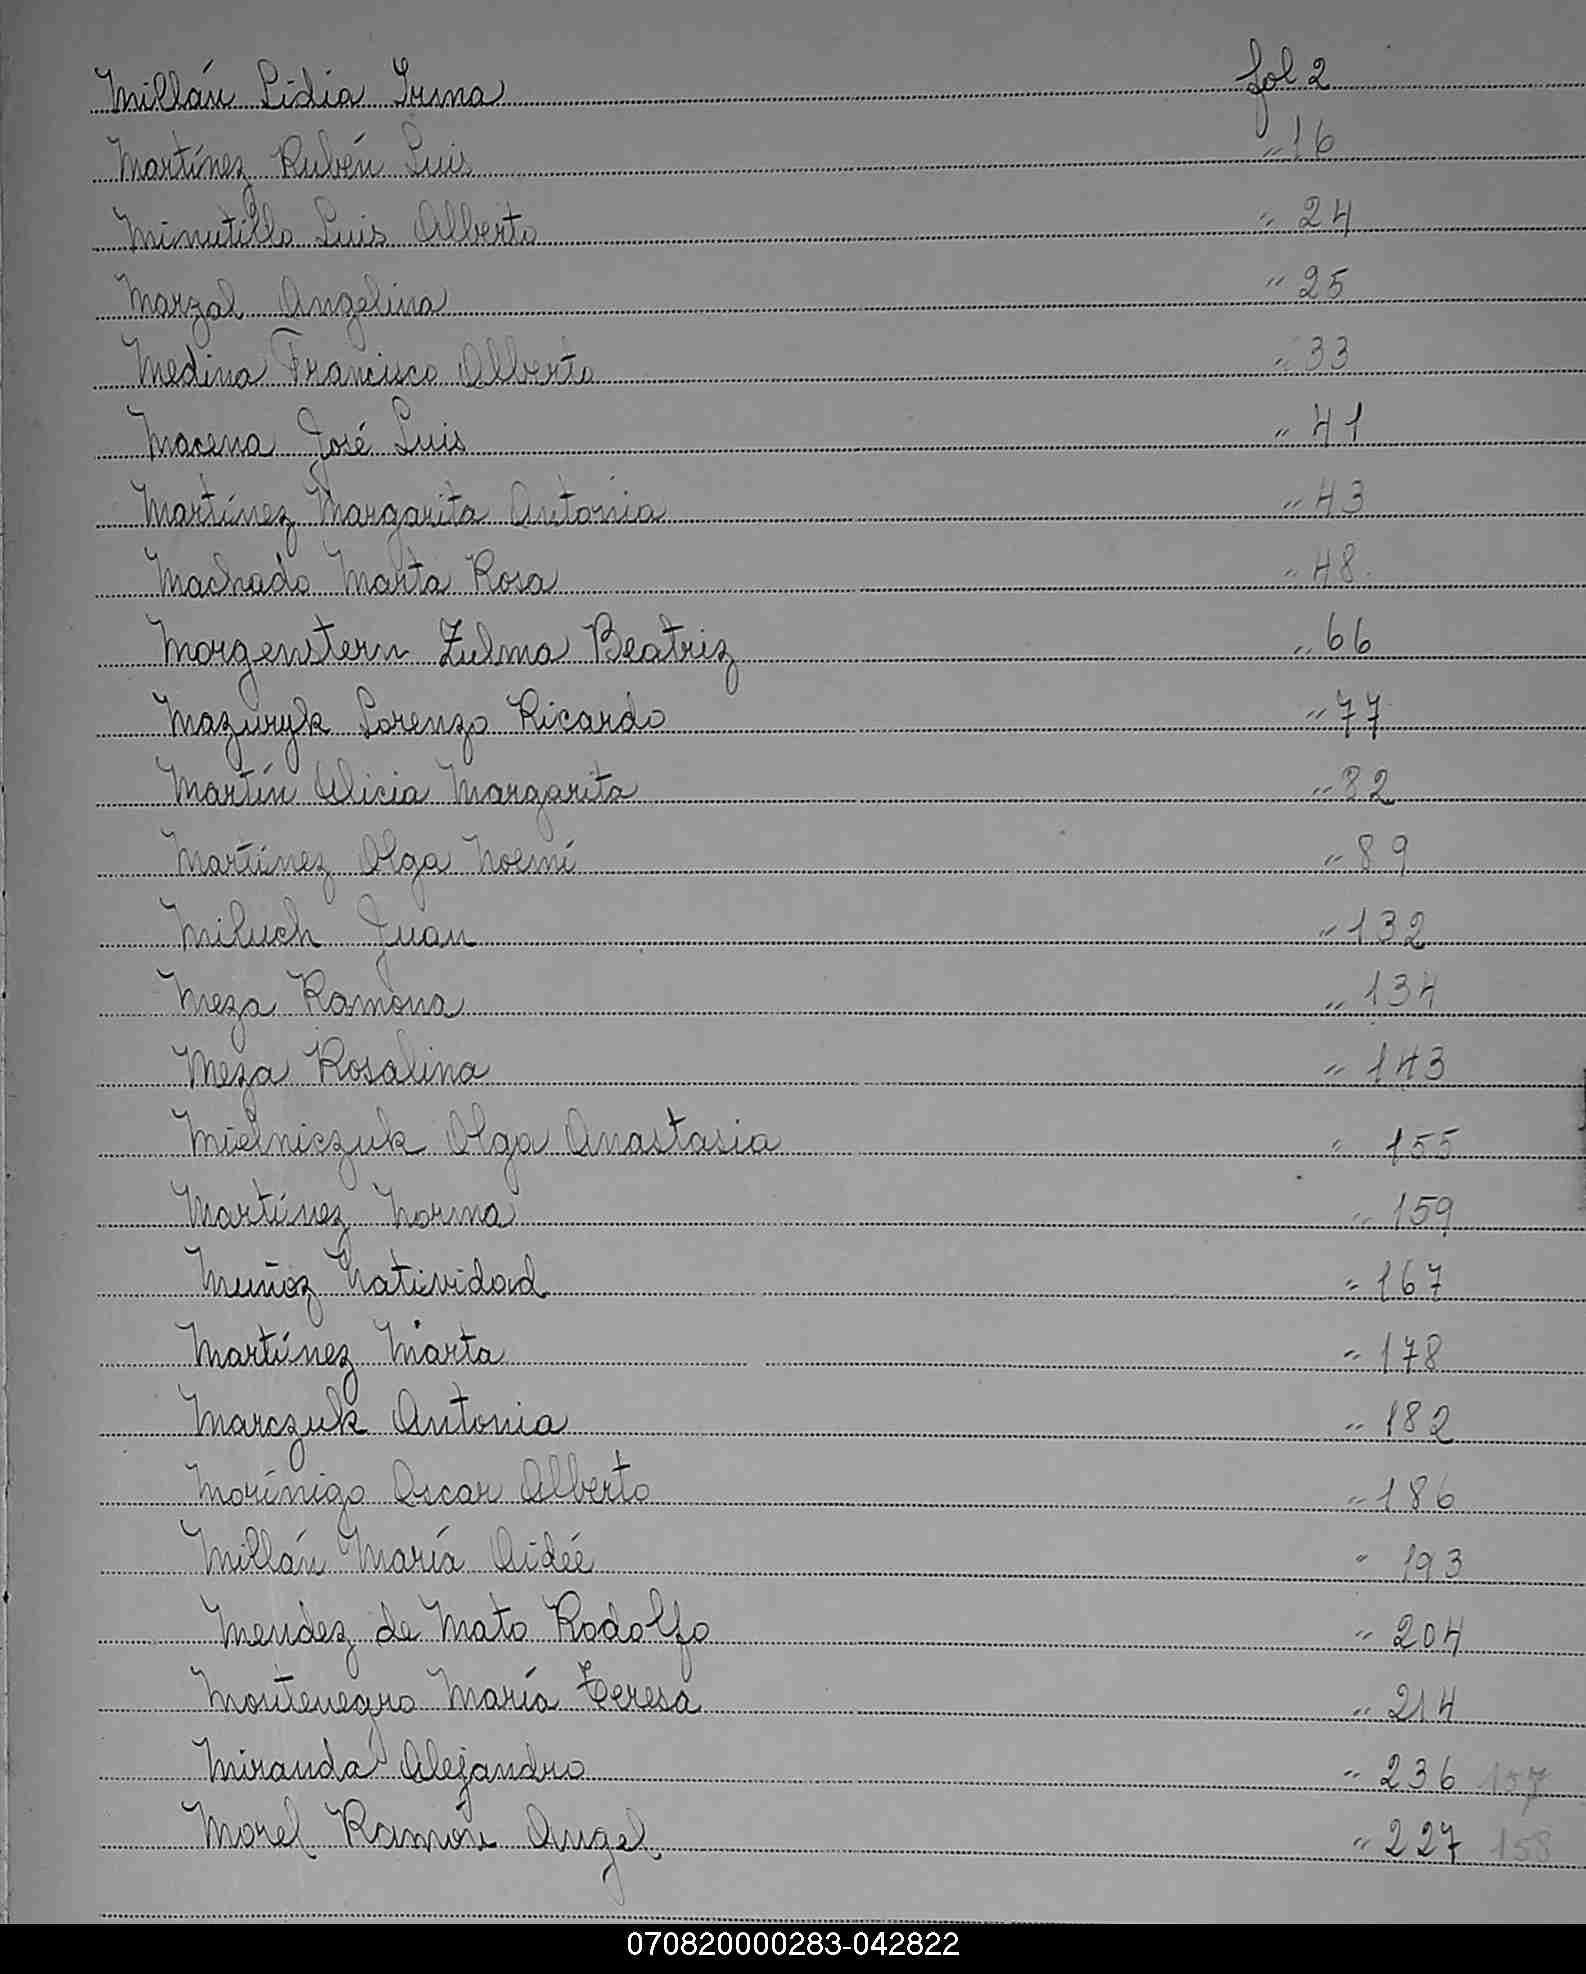 Millán Lidia Irma fol 2
Martínez Rubén Luis " 16
Minutillo Luis Alberto " 24
Marzal Angelina " 25
Medina Francisco Alberto " 33
Macena José Luis " 41
Martínez Margarita Antonia " 43
Machado Marta Rosa " 48
Morgenstern Zulma Beatriz " 66
Mazuryk Lorenzo Ricardo " 77
Martín Alicia Margarita " 82
Martínez Olga Noemí " 89
Miluch Juan " 132
Meza Ramona " 134
Meza Rosalina " 143
Mielniczuk Olga Anastasia " 155
Martínez Norma " 159
Muñoz Natividad " 167
Martínez Marta " 178
Marczuk Antonia " 182
Morínigo Oscar Alberto " 186
Millán María Aideé " 193
Mendez de Mato Rodolfo " 204
Montenegro María Teresa " 214
Miranda Alejandro " 236 157
Morel Ramón Angel " 227 158
070820000283-042822